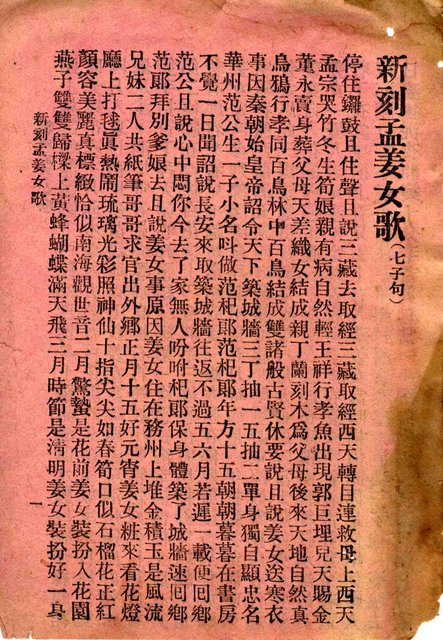 新刻孟姜女歌(七字句)
停住鑼鼓且住聲且說三藏去取經三藏取經西天轉目連救母上西天
孟宗哭竹冬生筍娘親有病自然輕王祥行孝魚出現郭巨埋兒天賜金
董永賣身葬父母天差織女結成親丁蘭刻木爲父母後來天地自然真
烏鴉行孝同百鳥林中百鳥結成雙諸般古賢休要說且說姜女送寒衣
事因秦朝始皇帝詔令天下築城牆三丁抽一五抽二單身獨自顯忠名
華州范公生一子小名呌做范杞郎范杞郎年方十五朝朝暮暮在書房
不覺一日聞詔說長安來取築城牆往返不過五六月若遲一載便囘鄉
范公且說心中悶你今去了家無人吩咐杞郎保身體築了城牆速囘鄉
范郎拜別爹娘去且說姜女事原因姜女住在務州上堆金積玉是風流
兄妹二人共紙筆哥哥求官出外鄉正月十五好元宵姜女粧來看花燈
廳上打毬眞熱鬧琉璃光彩照神仙十指尖尖如春筍口似石榴花正紅
顏容美麗真標緻恰似南海觀世音二月驚蟄是花前姜女裝扮入花園
燕子雙雙歸樑上黃蜂蝴蝶滿天飛三月時節是清明姜女裝扮好一身
新刻孟姜女歌
一